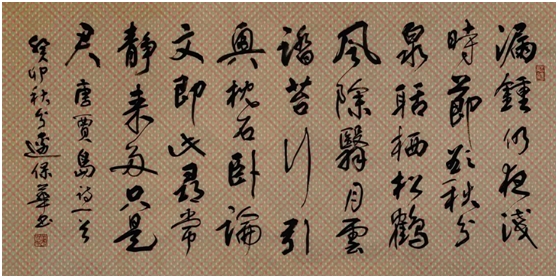 漏鍾仍夜淺
時節欲秋分
泉聒栖松鶴
風除翳月雲
踏苔行引
興枕石卧論
文即此尋常
静来多只是
君 唐賈島詩一首
癸卯秋分 保華书